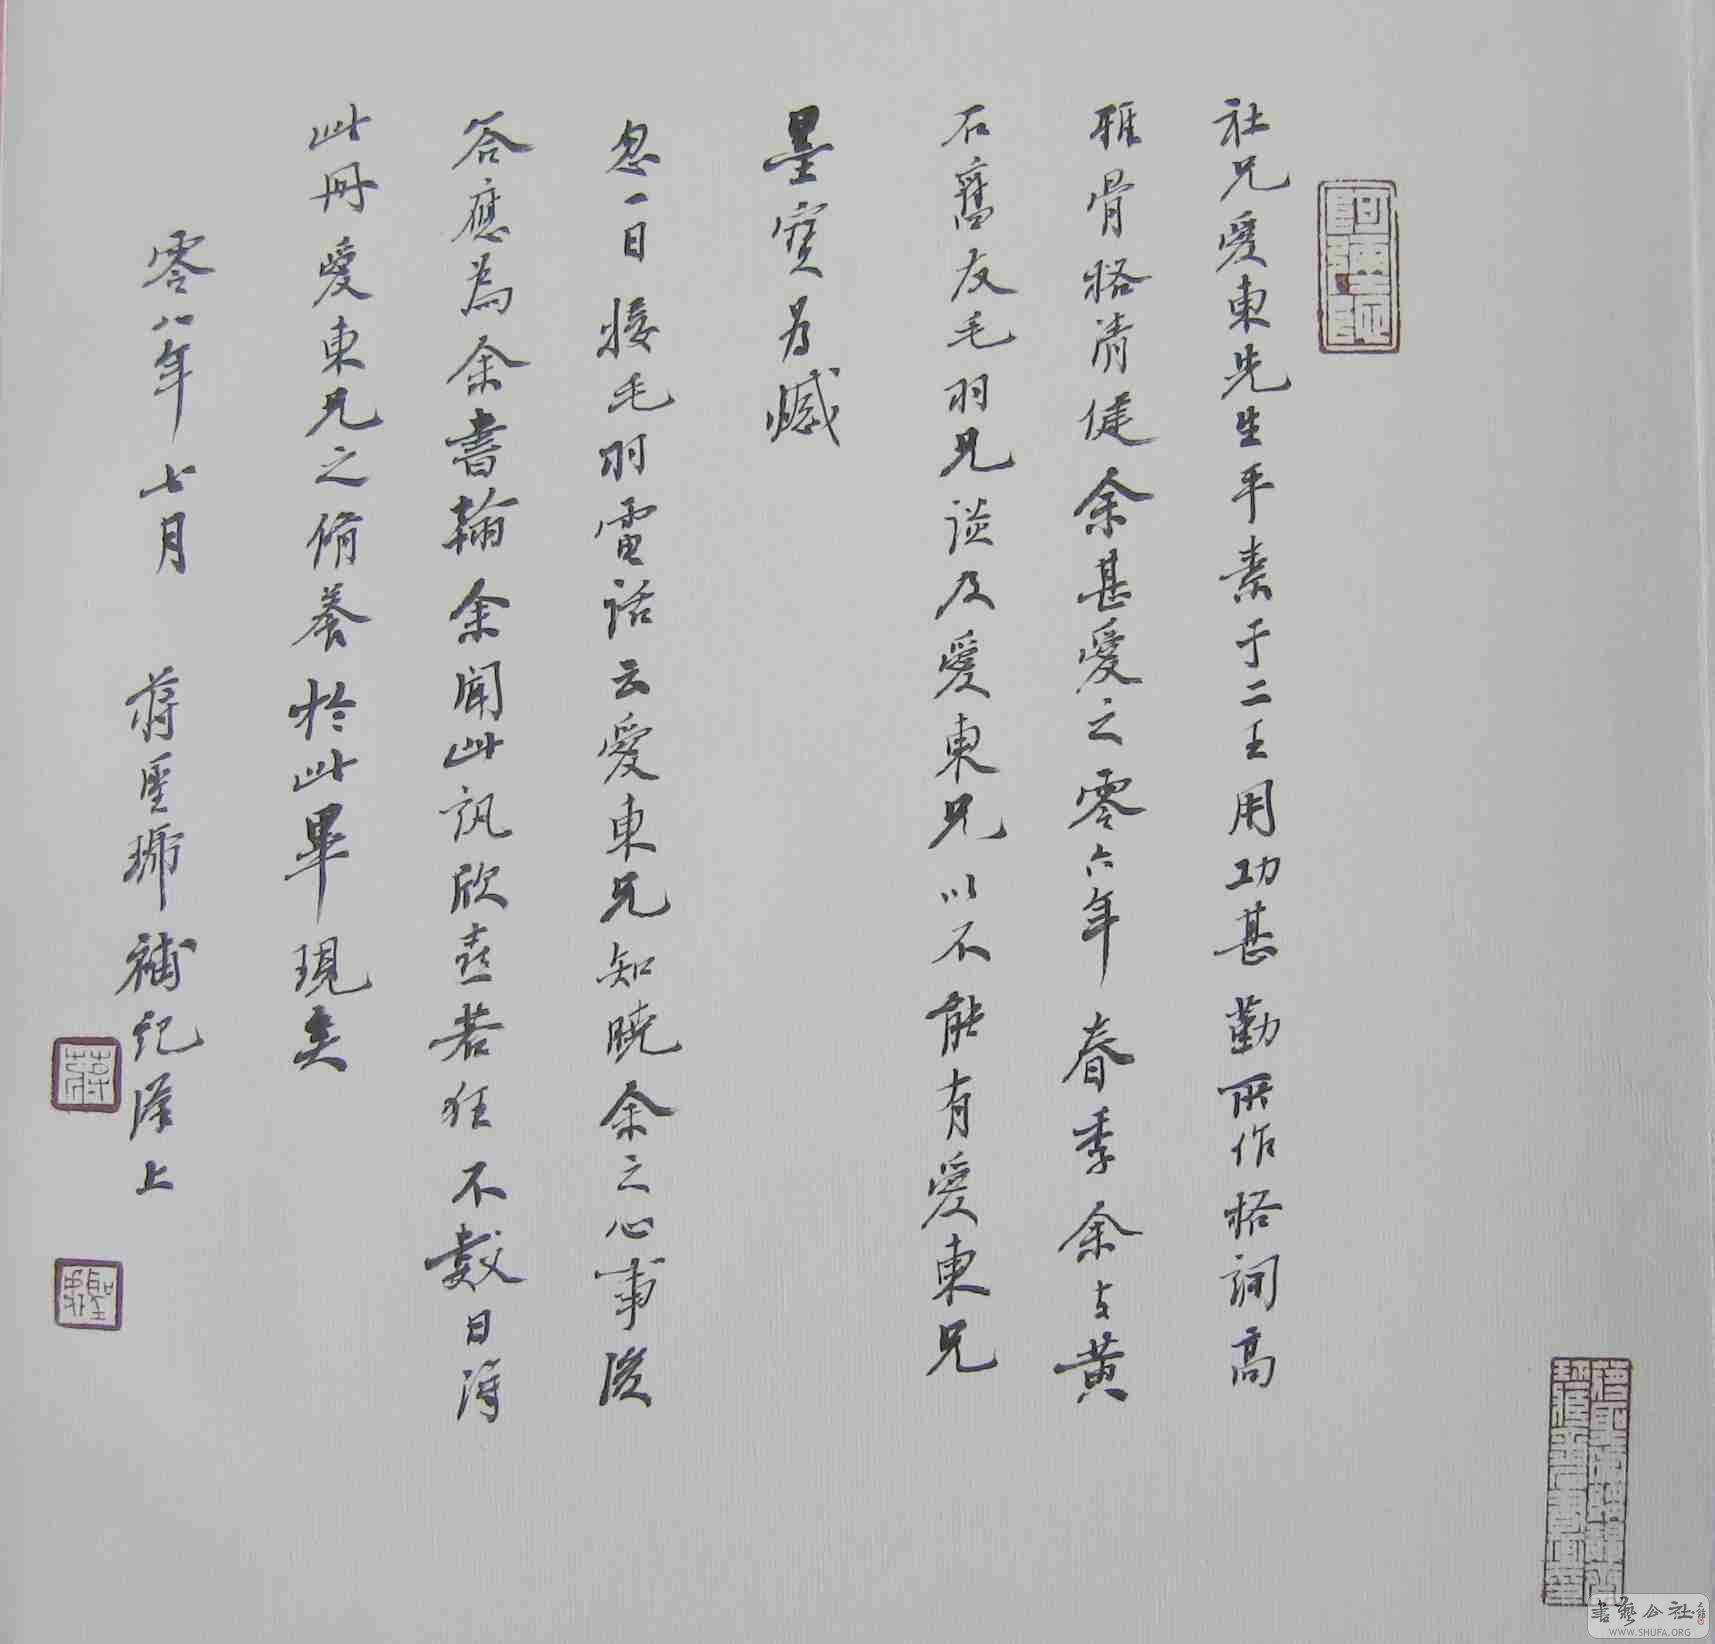 社兄愛東先生平素于二王用功甚勤所作格調高
雅骨格清健余甚愛之零六年春季余与黄
石舊友毛羽兄談及愛東兄以不能有愛東兄
墨寶為憾
忽一日接毛羽電話云愛東兄知曉余之心事後
答應為余書翰余聞此訊欣喜若狂不數日得
此冊愛東兄之脩養於此畢現矣
零八年七月 蔣聖琥補紀漢上
蔣
書藝公社
WWW.SHUFA.ORG